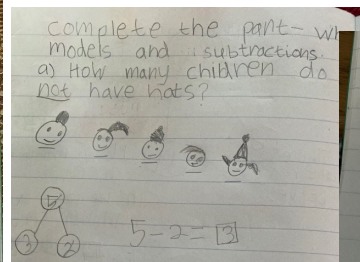 complete the part- wh
models and subtractions.
a) How many children do
not have hats?
5
3 2
5-2=3